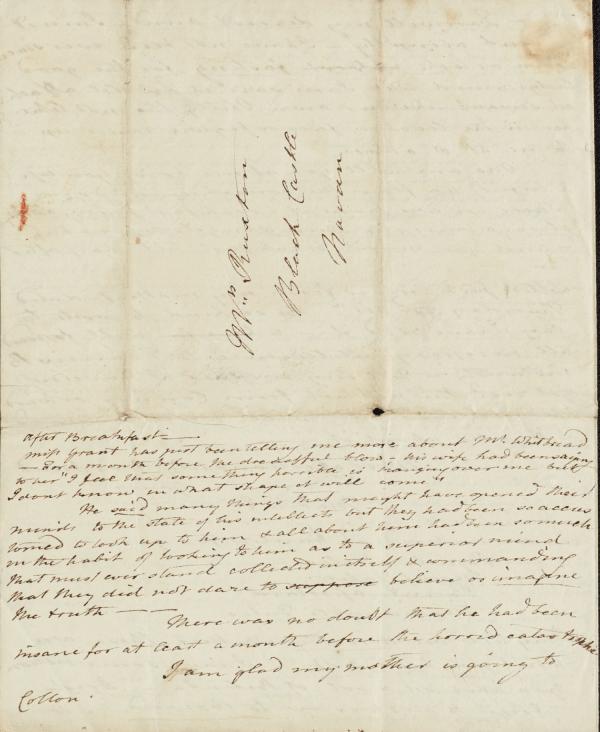 Mrs Ruxton
Black Castle
Navan
After Breakfast —
Miss Grant has just been telling me more about Mr Whitbread
— For a month before the dreadful blow — his wife had been saying
to her "I feel that something horrible is hanging over me but
I dont know in what shape it will come"
He said many things that might have opened their
minds to the state of his intellects but they had been so accus
tomed to look up to him & all about him had been so much
in the habit of looking to him as to a superior mind
that must ever stand collected in itself & commanding
that they did not dare to suppose believe or imagine
the truth — —
There was no doubt that he had been
insane for at least a month before the horrid catastrophe
I am glad my mother is going to
Collon.